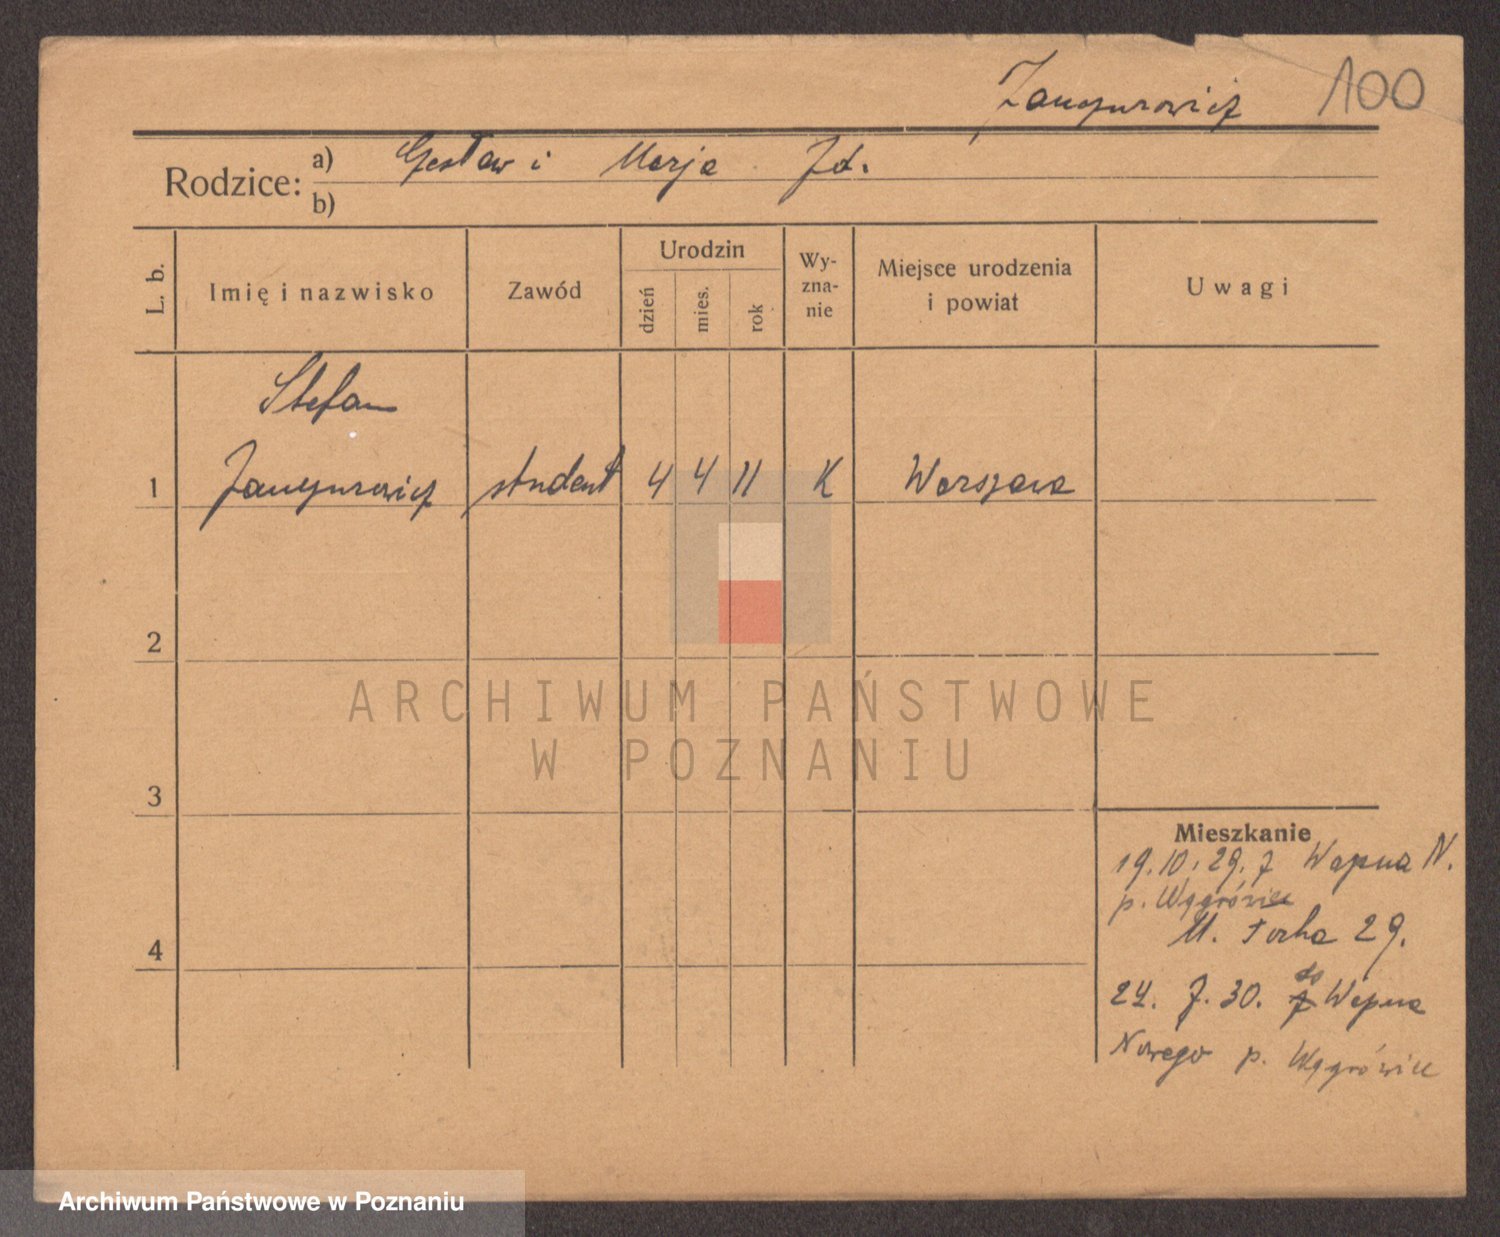 100
Rodzice: a) i Marja Zd.
b)
L. b.
Imię i nazwisko
Zawód
Urodzin
dzień
mies.
rok
Wy-
zna-
nie
Miejsce urodzenia
i powiat
Uwagi
Stefan
1 student 4 4 11 K Warszawa
2
ARCHIWUM PAŃSTWOWE
W POZNANIU
3
Mieszkanie
19.10.29. z Wapna N.
p. Wągrówiec
29.
4
24. 7. 30. do Wapna
Nowego p. Wągrówiec
Archiwum Państwowe w Poznaniu